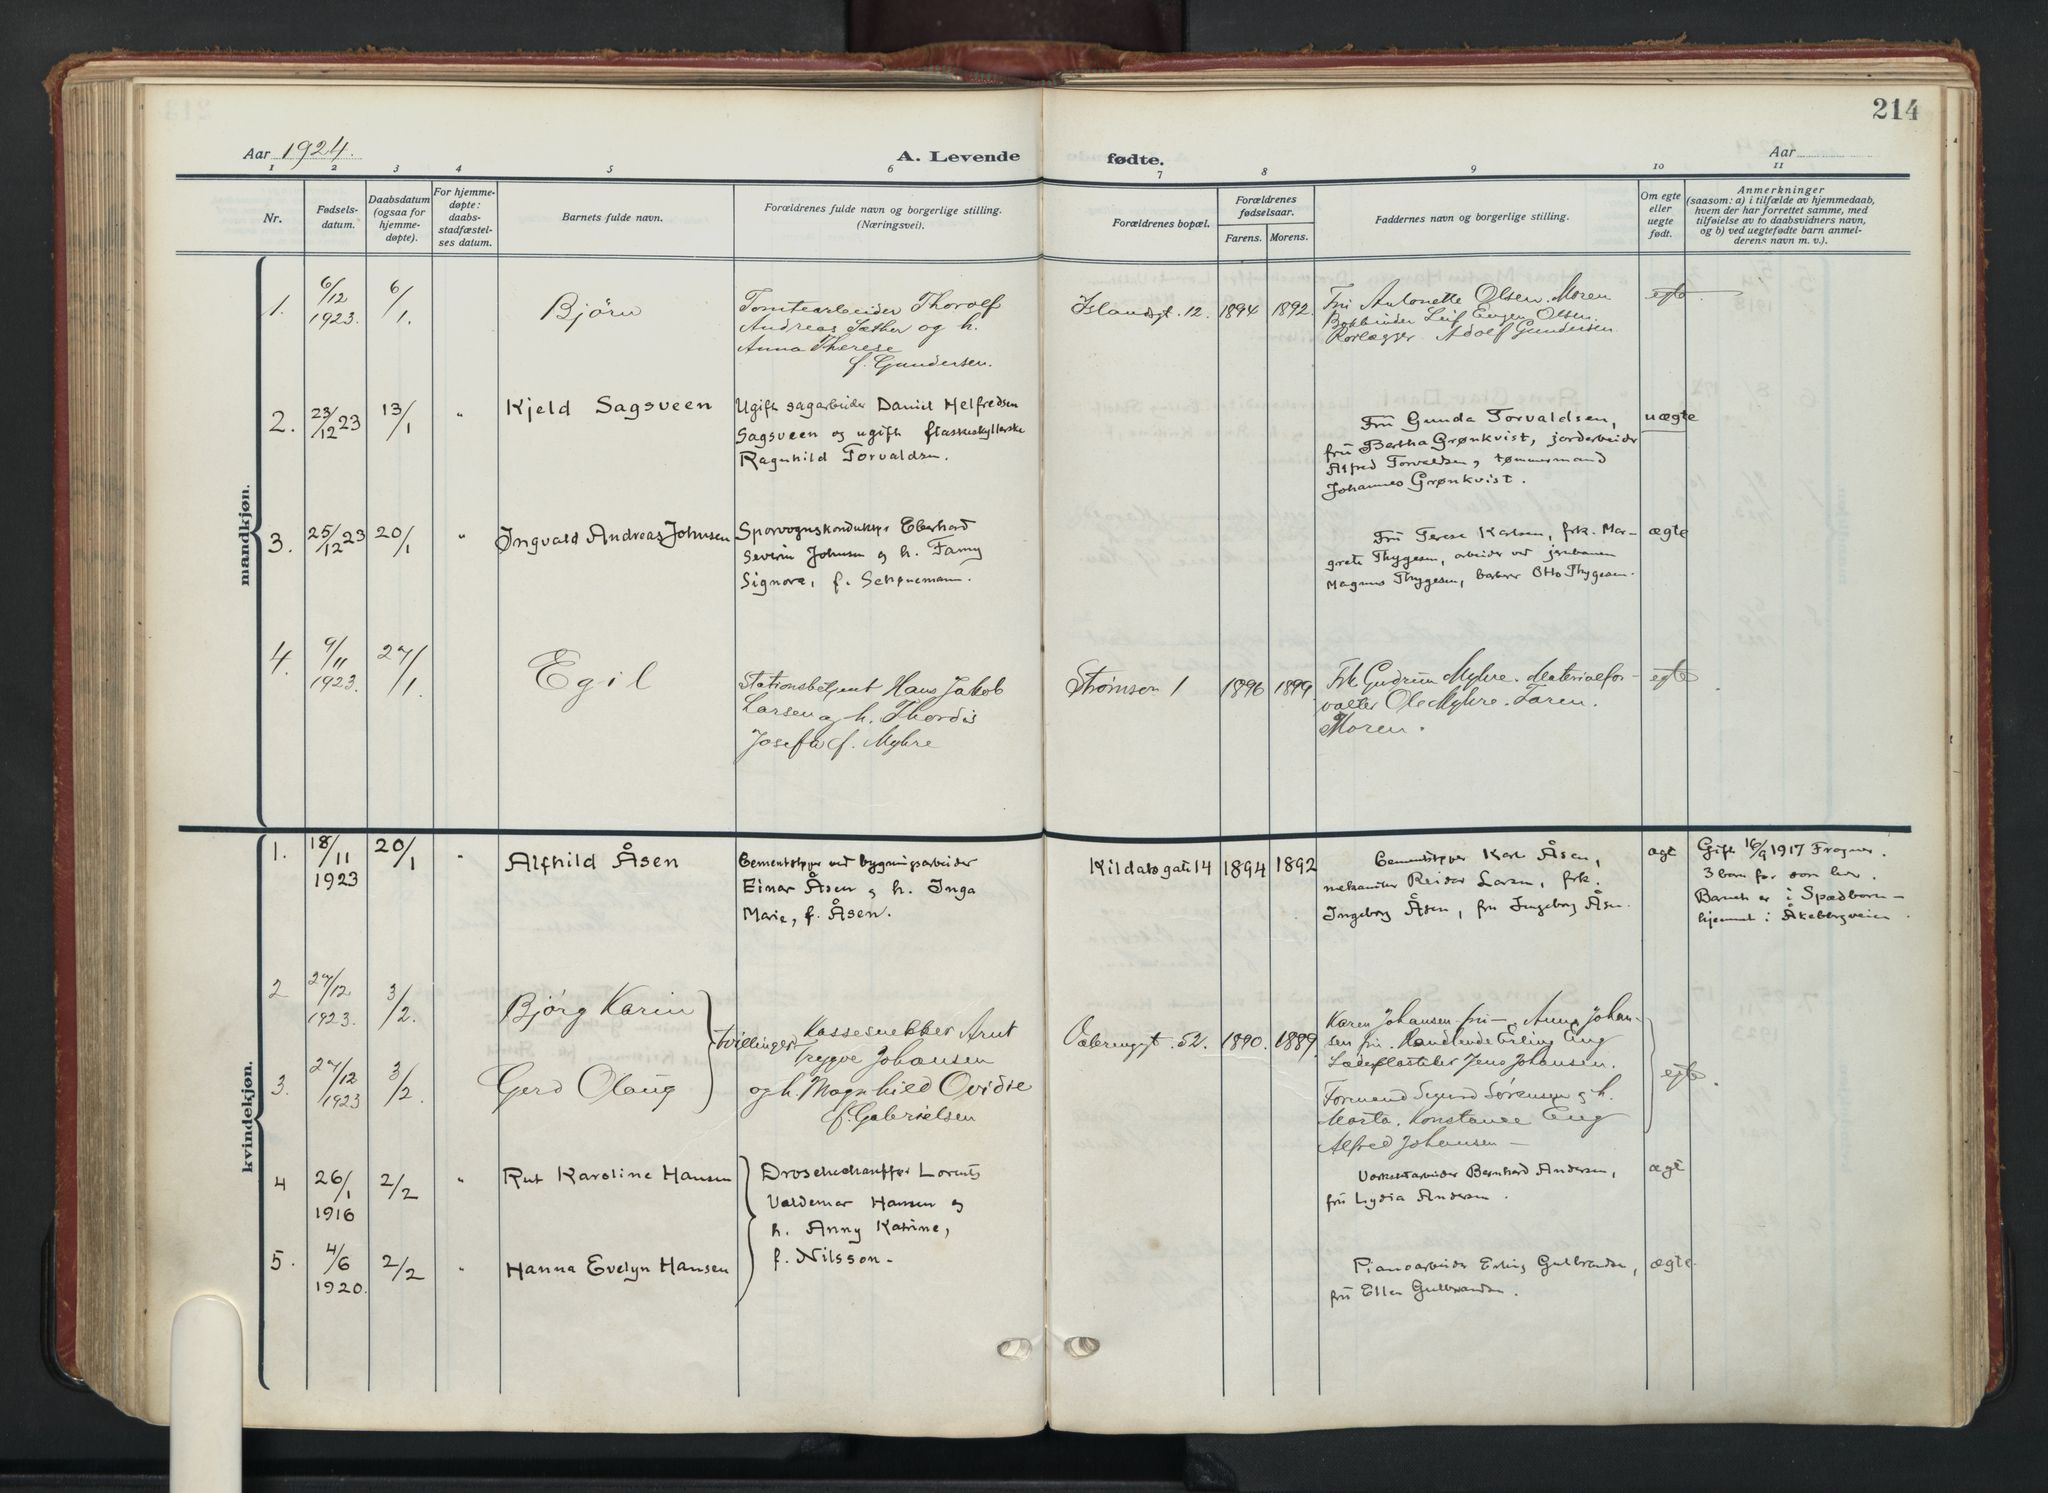 214
Aar 1924.
A. Levende fødte.
Aar
1 2 3 4 5 6 7 8 9 10 11
Nr.
Fødsels-
datum.
Daabsdatum
(ogsaa for
hjemme-
døpte).
For hjemme-
døpte:
daabs-
stadfæstel-
ses datum.
Barnets fulde navn.
Forældrenes fulde navn og borgerlige stilling.
(Næringsvei).
Forældrenes bopæl.
Forældrenes
fødselsaar.
Farens. Morens.
Faddernes navn og borgerlige stilling.
Om egte
eller
uegte
født.
Anmerkninger
(saasom: a) i tilfælde av hjemmedaab,
hvem der har forrettet samme, med
tilføielse av to daabsvidners navn,
og b) ved uegtefødte barn anmel-
derens navn m. v.).
mandkjøn.
1.
6/12
1923.
6/1.
Bjørn
Tomtearbeider Thorolf
Andreas Sæther og h.
Anna Therese
f. Gundersen.
Islandsgt. 12.
1894
1892.
Fru Antonette Olsen. Moren
Bokbinder Leif Eugen Olsen.
Rørlægger Adolf Gundersen
egte
2.
23/12 23
13/1
"
Kjeld Sagsveen
Ugift sagarbeider Daniel Helfredsen
Sagsveen og ugift flaskeskyllerske
Ragnhild Torvaldsen.
Fru Gunda Torvaldsen,
fru Bertha Grønkvist, jordarbeider
Alfred Torvaldsen, tømmermand
Johannes Grønkvist.
uægte
3.
25/12 23
20/1
"
Ingvald Andreas Johnsen
Sporvognskonduktør Eberhard
Severin Johnsen og h. Fanny
Signora, f. Schønemann.
Fru Terese Karlsen, frk. Mar-
grete Thygesen, arbeider ved jernbanen
Magnus Thygesen, barberer Otto Thygesen.
ægte
4.
9/11
1923.
27/1.
Egil
Stationsbetjent Hans Jakob
Larsen og h. Thordis
Josefa f. Myhre
Strømsn 1
1896
1899.
Frk Gudrun Myhre. Materialfor-
valter Ole Myhre. Faren.
Moren.
egte
kvindekjøn.
1.
18/11
1923
20/1
"
Alfhild Åsen
Cementstøper ved bygningsarbeider
Einar Åsen og h. Inga
Marie, f. Åsen.
Kildalsgate 14
1894
1892
Cementstøper Karl Åsen,
mekaniker Reidar Larsen, frk.
Ingeborg Åsen, fru Ingeborg Åsen.
ægt
Gift 16/9 1917 Frogner.
3 barn før som lever.
Barnet er i Spædbarn-
hjemmet i Åkebergveien.
2
27/12
1923.
3/2.
Bjørg Karin
3.
27/12
1923
3/2.
Gerd Olaug
tvillinger
Kassesnekker Arnt
Trygve Johansen
og h. Magnhild Ovidie
f. Gabrielsen
Vålerenggt. 52.
1890.
1889.
Karen Johansen fru - Anna Johan-
sen fru. Handlende Erling Eng
Jens Johansen.
Formand Sigurd Sørensen og h.
Marta. Konstance Eng
Alfred Johansen -
egte.
4
26/1
1916
2/2
"
Rut Karoline Hansen
5.
4/6
1920.
2/2
"
Hanna Evelyn Hansen
Droschechauffør Lorents
Valdemar Hansen og
h. Anny Katrine,
f. Nilsson.
Verkstedarbeider Bernhard Andersen,
fru Lydia Andersen.
ægt
Pianoarbeider Erling Gulbrandsen,
fru Ellen Gulbrandsen.
ægte